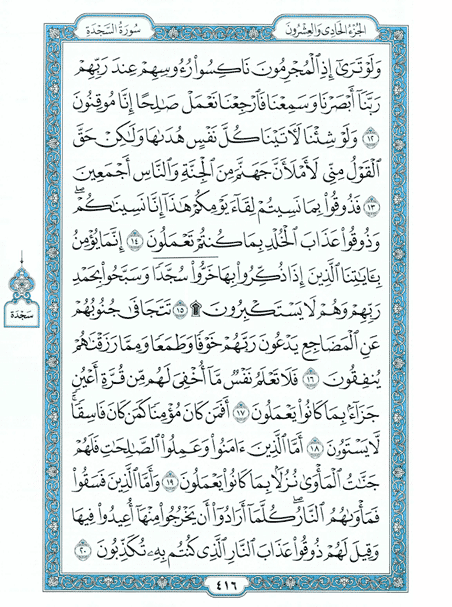 الجزء الحادي والعشرون
سورة السجدة
وَلَوْ تَرَىٰ إِذِ الْمُجْرِمُونَ نَاكِسُوا رُءُوسِهِمْ عِندَ رَبِّهِمْ
رَبَّنَا أَبْصَرْنَا وَسَمِعْنَا فَارْجِعْنَا نَعْمَلْ صَالِحًا إِنَّا مُوقِنُونَ
١٢ وَلَوْ شِئْنَا لَآتَيْنَا كُلَّ نَفْسٍ هُدَاهَا وَلَٰكِنْ حَقَّ
الْقَوْلُ مِنِّي لَأَمْلَأَنَّ جَهَنَّمَ مِنَ الْجِنَّةِ وَالنَّاسِ أَجْمَعِينَ
١٣ فَذُوقُوا بِمَا نَسِيتُمْ لِقَاءَ يَوْمِكُمْ هَٰذَا إِنَّا نَسِينَاكُمْ ۖ
وَذُوقُوا عَذَابَ الْخُلْدِ بِمَا كُنتُمْ تَعْمَلُونَ ١٤ إِنَّمَا يُؤْمِنُ
بِآيَاتِنَا الَّذِينَ إِذَا ذُكِّرُوا بِهَا خَرُّوا سُجَّدًا وَسَبَّحُوا بِحَمْدِ
رَبِّهِمْ وَهُمْ لَا يَسْتَكْبِرُونَ ۩ ١٥ تَتَجَافَىٰ جُنُوبُهُمْ
عَنِ الْمَضَاجِعِ يَدْعُونَ رَبَّهُمْ خَوْفًا وَطَمَعًا وَمِمَّا رَزَقْنَاهُمْ
يُنفِقُونَ ١٦ فَلَا تَعْلَمُ نَفْسٌ مَّا أُخْفِيَ لَهُم مِّن قُرَّةِ أَعْيُنٍ
جَزَاءً بِمَا كَانُوا يَعْمَلُونَ ١٧ أَفَمَن كَانَ مُؤْمِنًا كَمَن كَانَ فَاسِقًا ۚ
لَّا يَسْتَوُونَ ١٨ أَمَّا الَّذِينَ آمَنُوا وَعَمِلُوا الصَّالِحَاتِ فَلَهُمْ
جَنَّاتُ الْمَأْوَىٰ نُزُلًا بِمَا كَانُوا يَعْمَلُونَ ١٩ وَأَمَّا الَّذِينَ فَسَقُوا
فَمَأْوَاهُمُ النَّارُ ۖ كُلَّمَا أَرَادُوا أَن يَخْرُجُوا مِنْهَا أُعِيدُوا فِيهَا
وَقِيلَ لَهُمْ ذُوقُوا عَذَابَ النَّارِ الَّذِي كُنتُم بِهِ تُكَذِّبُونَ ٢٠
سجدة
٤١٦